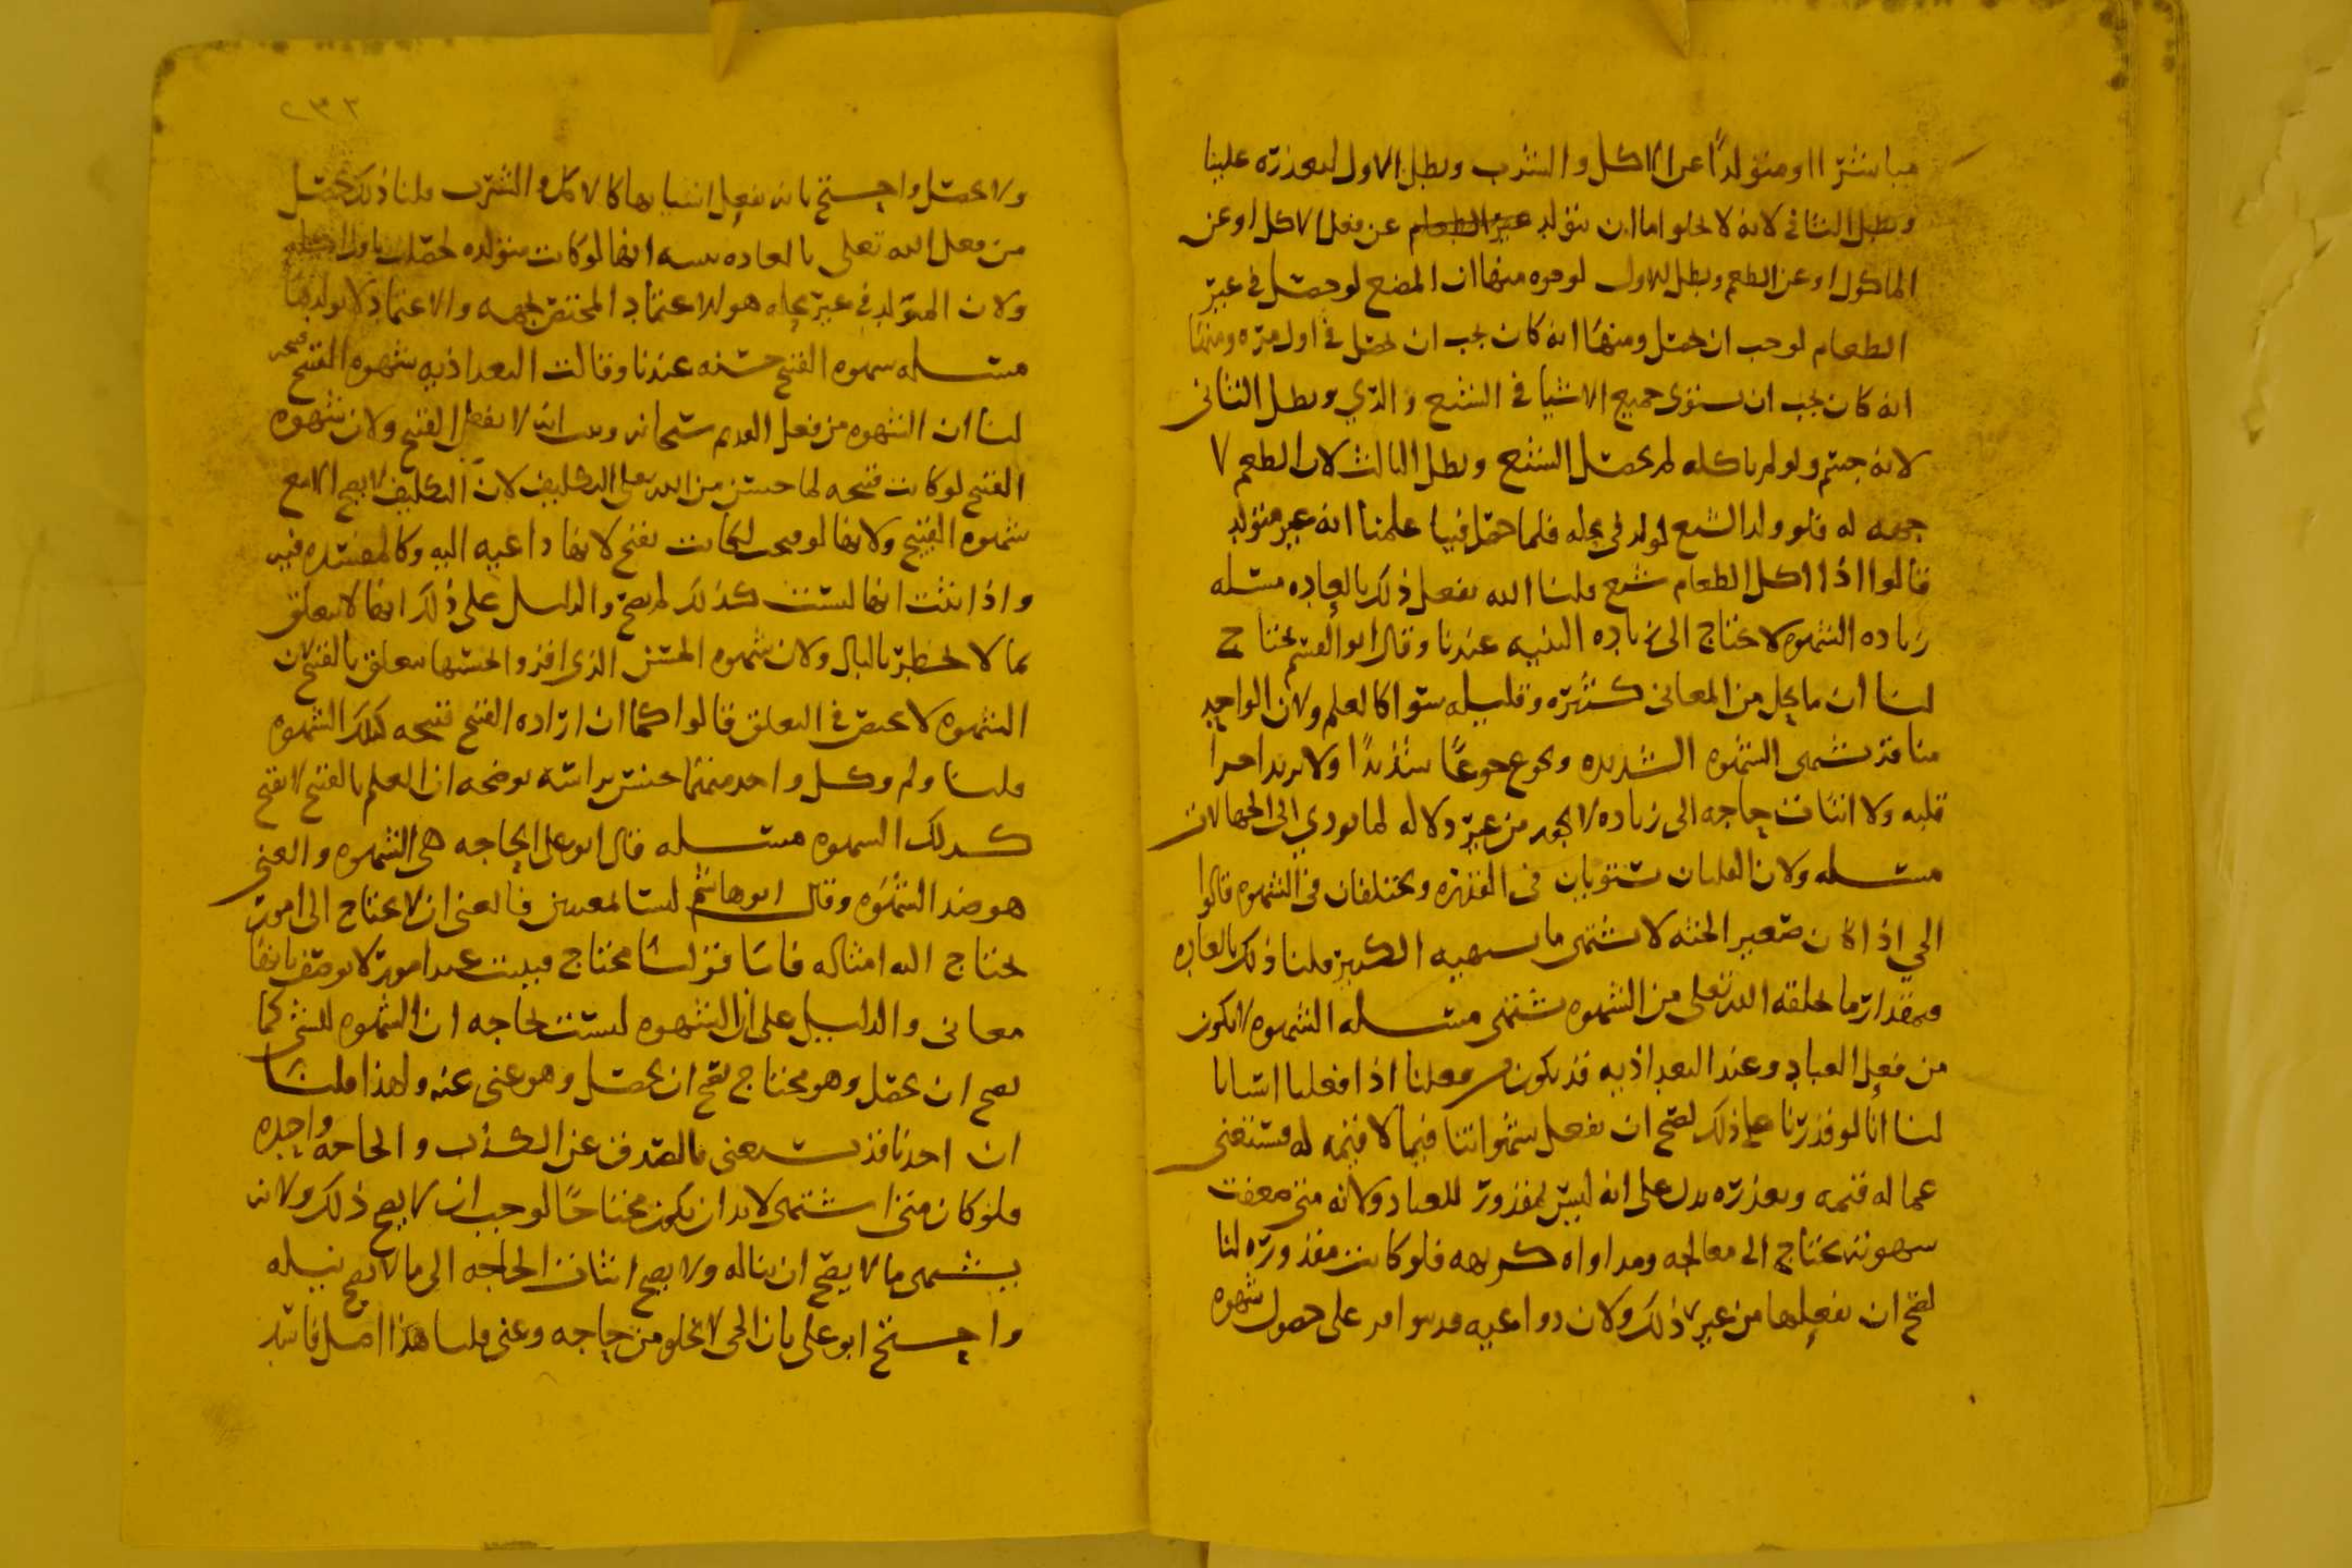 مباشرا او متولدا عن الاكل والشرب وبطل الاول لتعذره علينا
وبطل الثاني لانه لا يخلو اما ان يتولد عن الطعام عن فعل الاكل او عن
الماكول او عن الطعم وبطل الاول لوجوه منها ان المضغ لو حصل في غير
الطعام لوجب ان يحصل ومنها انه كان يجب ان يحصل في اول مره ومنها
انه كان يجب ان يستوي جميع الاشيا في الشبع والري وبطل الثاني
لانه جسم ولو لم ياكله لم يحصل الشبع وبطل الثالث لان الطعم لا
جهه له فلو ولد الشبع لولد في محله فلما حصل فينا علمنا انه غير متولد
قالوا اذا اكل الطعام شبع قلنا الله يفعل ذلك بالعاده مسله
زياده الشهوه لا تحتاج الى زياده البنيه عندنا وقال ابو القسم تحتاج
لنا ان ما يحل من المعاني كثيره وقليله سوا كالعلم ولان الواحد
منا قد يشتهي الشهوه الشديده ويجوع جوعا شديدا ولا يزيد اجزا
قلبه ولا اثبات حاجه الى زياده لا يجوز من غير دلاله لما يودي الى الجهالات
مسله ولان القلبان يستويان في القدره ويختلفان في الشهوه قالوا
الحي اذا كان صغير الجثه لا يشتهي ما يشتهيه الكبير قلنا ذلك بالعاده
فبمقدار ما يخلقه الله تعلى من الشهوه يشتهي مسله الشهوه لا تكون
من فعل العباد وعند البغداذيه قد يكون من فعلنا اذا فعلنا اسبابا
لنا انا لو قدرنا على ذلك لصح ان نفعل شهواتنا فيما لا قيمه له فنستغني
عما له قيمه وتعذره يدل على انه ليس بمقدور للعباد ولانه متى ضعفت
شهوته يحتاج الى معالجه ومداواه كريهه فلو كانت مقدوره لنا
لصح ان نفعلها من غير ذلك ولان دواعيه قد تتوافر على حصول شهوه
ولا يحصل واحتج بانه يفعل اسبابها كالاكل والشرب قلنا ذلك يحصل
من فعل الله تعلى بالعاده يبينه انها لو كانت متولده لحصلت باول
ولان المتولد في غير محله هو الاعتماد المختص بجهه والاعتماد لا يولدها
مسله شهوه القبيح حسنه عندنا وقالت البغداذيه شهوه القبيح قبيحه
لنا ان الشهوه من فعل القديم سبحانه وثبت انه لا يفعل القبيح ولان شهوه
القبيح لو كانت قبيحه لما حسن من الله تعلى التكليف لان التكليف لا يصح الا مع
شهوه القبيح ولانها لو قبحت لكانت تقبح لانها داعيه اليه وكالمفسده فيه
واذا ثبت انها ليست كذلك لم يصح والدليل على ذلك انها لا تتعلق
بما لا يخطر بالبال ولان شهوه الحسن الذي افرد والحسنها تتعلق بالقبيح لان
الشهوه لا تختص في التعلق قالوا كما ان اراده القبيح قبيحه كذلك الشهوه
قلنا ولم وكل واحد منهما جنس براسه يوضحه ان العلم بالقبيح لا يقبح
كذلك الشهوه مسله قال ابو علي الحاجه هي الشهوه والغنى
هو ضد الشهوه وقال ابو هاشم ليسا بمعنيين فالغنى ان لا يحتاج الى امور
يحتاج اليه امثاله محتاج
معاني والدليل على ان الشهوه ليست بحاجه ان الشهوه للشي كما
يصح ان يحصل وهو محتاج يصح ان يحصل وهو غني عنه ولهذا قلنا
ان احدنا قد يستغني بالصدق عن الكذب والحاجه واحده
فلو كان متى اشتهى لا بد ان يكون محتاجا لوجب ان لا يصح ذلك ولانه
يشتهي ما لا يصح ان يناله ولا يصح اثبات الحاجه الى ما لا يصح نيله
واحتج ابو علي بان الحي لا يخلو من حاجه وغنى قلنا هذا اصل فاسد